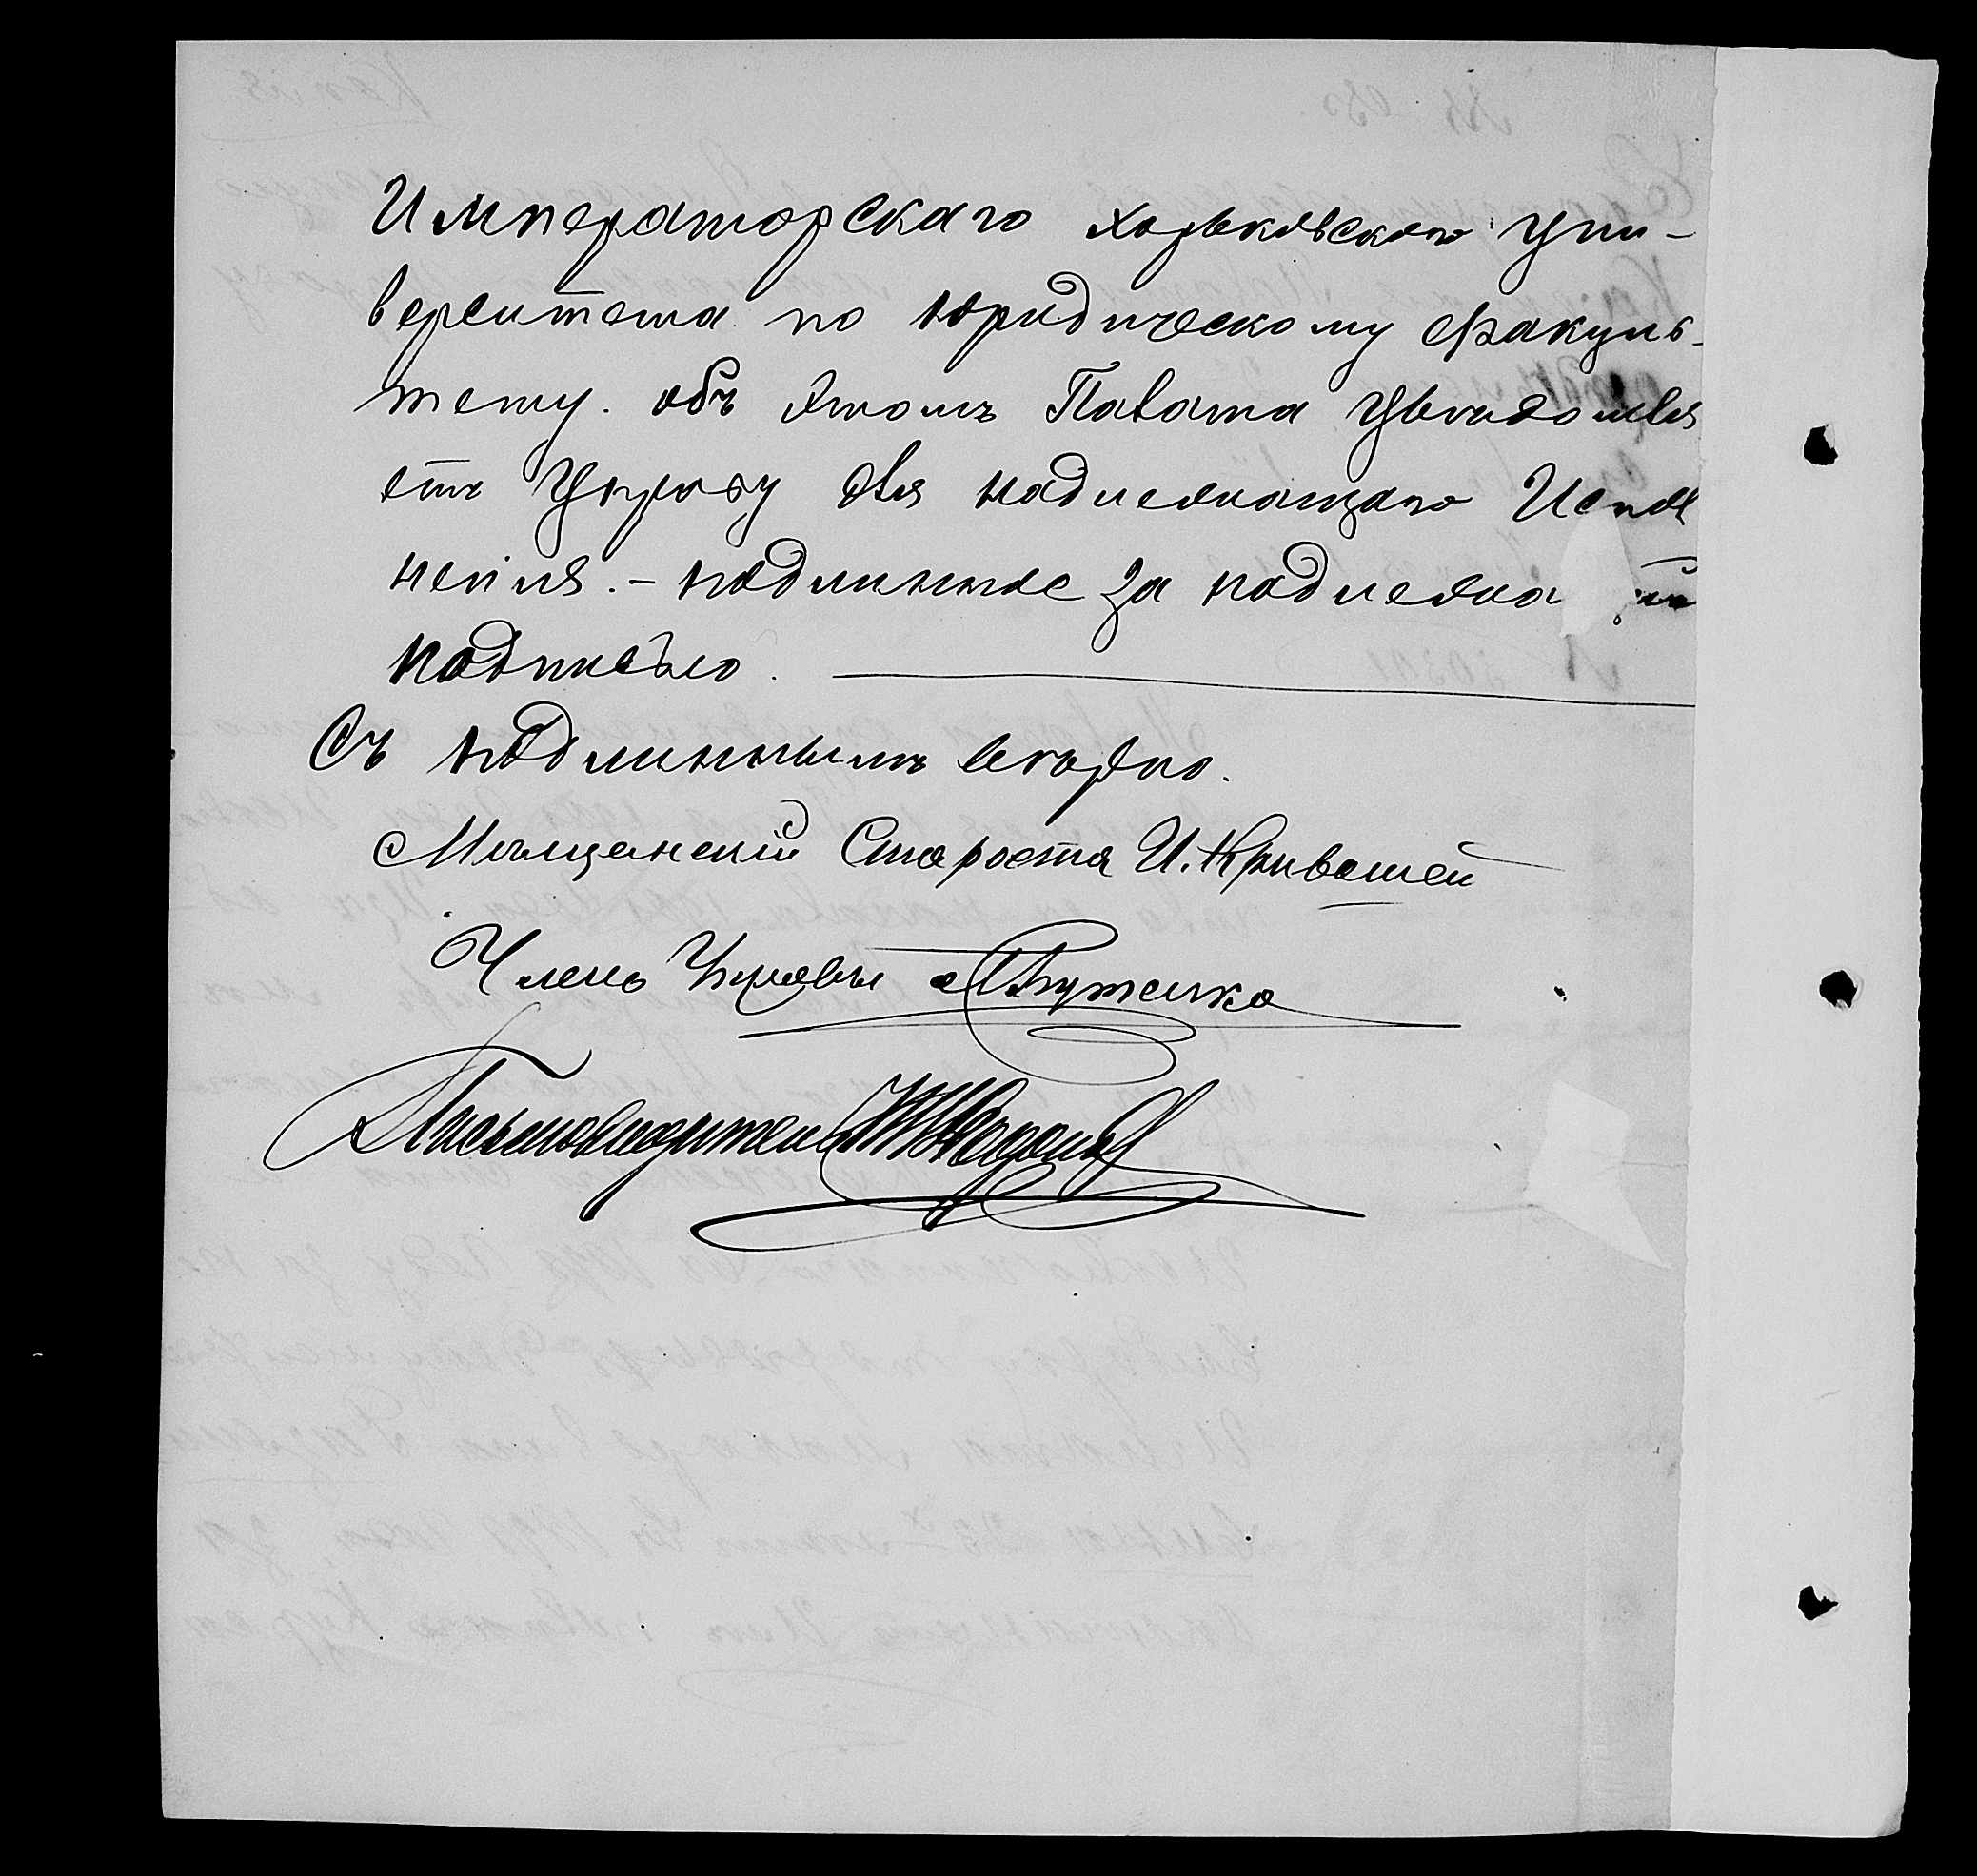 Императорскаго Харьковскаго Уни-
верситета по юридическому факуль-
тету. объ этомъ Палата Увѣдомля
етъ Управу для надлежащаго Испол
ненія. – подлинное за надлежа
подписью.
Съ подлиннымъ вѣрно.
Мѣщанскій Староста И. Кривошей
Членъ Управы
Письмоводитель